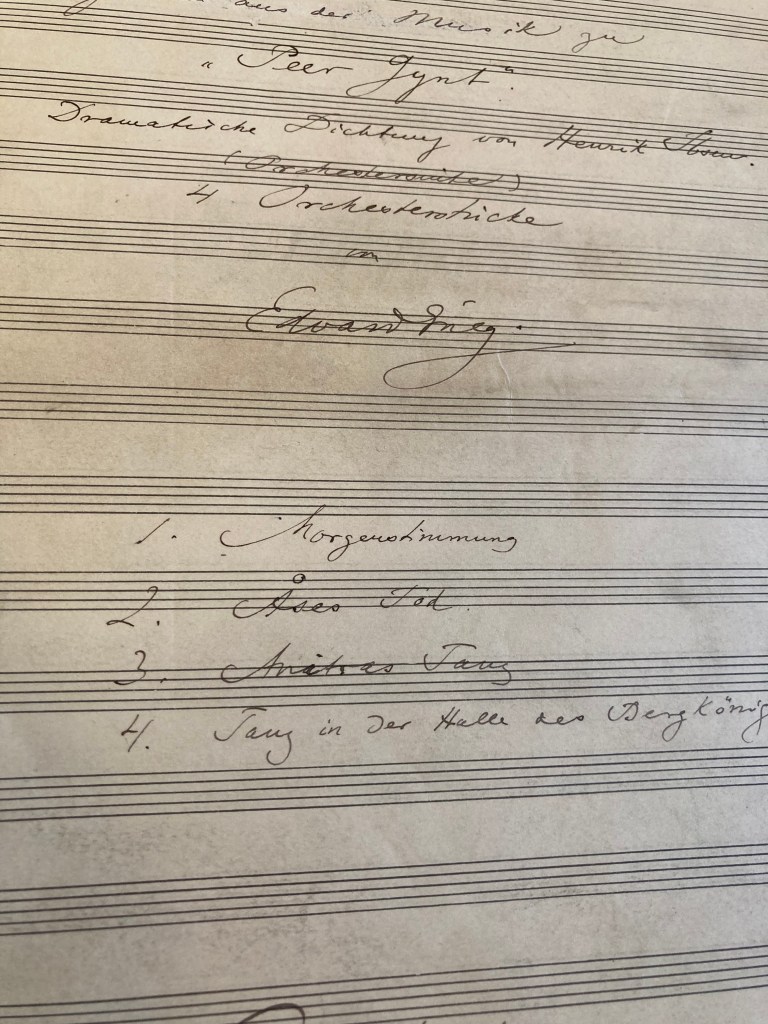 aus der Musik zu
„Peer Gynt“.
Dramatische Dichtung von Henrik Ibsen.
(Orchestersuite)
4 Orchesterstücke
von
Edvard Grieg.
1. Morgenstimmung
2. Åses Tod.
3. Anitras Tanz
4. Tanz in der Halle des Bergkönig